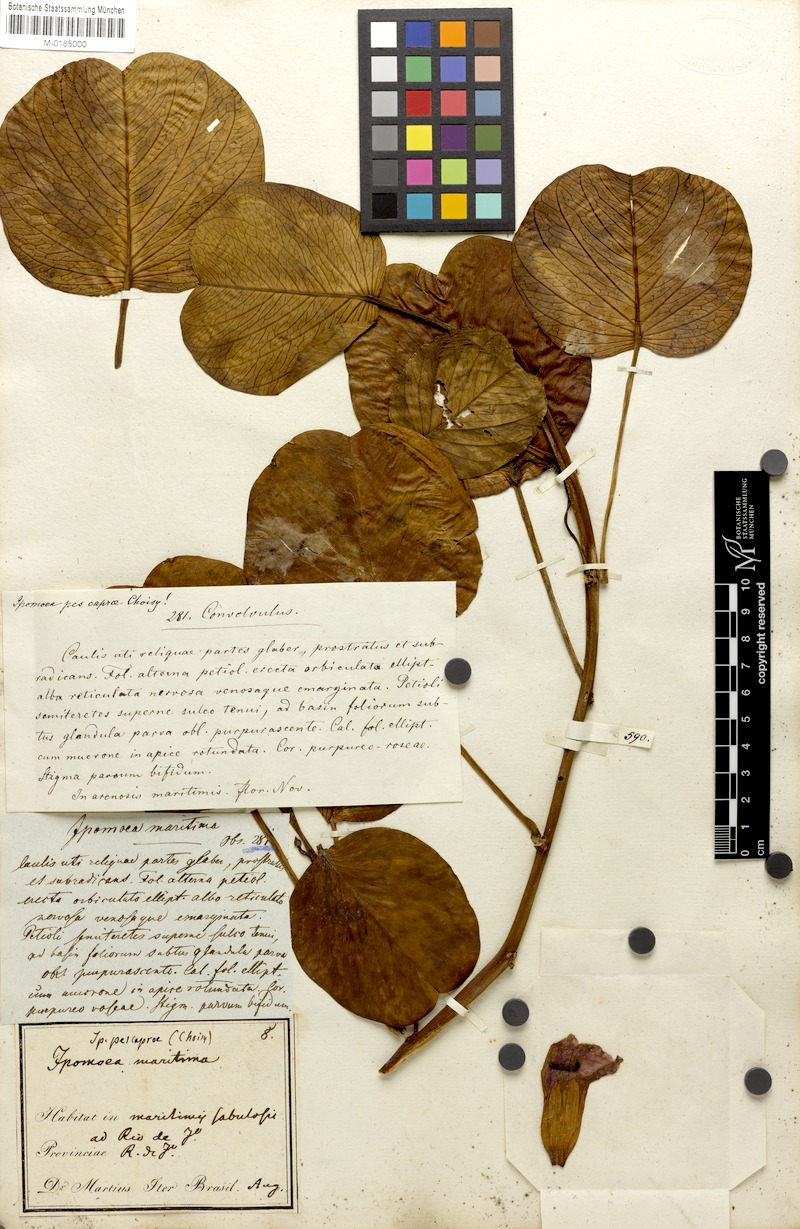 Botanische Staatssammlung München
M-0185000
BOTANISCHE
STAATSSAMMLUNG
MÜNCHEN
0 1 2 3 4 5 6 7 8 9 10
cm
copyright reserved
Ipomoea pes caprae Choisy!
281. Convolvulus.
Caulis uti reliquae partes glaber, prostratus et sub-
radicans. Fol. alterna petiol. erecta orbiculata ellipt.
albo reticulata nervosa venosaque emarginata. Petioli
semiteretes superne sulco tenui, ad basin foliorum sub-
tus glandula parva obl. purpurascente. Cal. fol. ellipt.
cum mucrone in apice rotundata. Cor. purpureo-roseae.
Stigma parvum bifidum.
In arenosis maritimis. flor. Nov.
590.
Ipomoea maritima
Obs. 281
Caulis uti reliquae partes glaber, prostratus
et subradicans. Fol. alterna petiol.
erecta orbiculata ellipt. albo reticulato
nervosa venosaque emarginata.
Petioli semiteretes superne sulco tenui,
ad basin foliorum subtus glandula parva
obl. purpurascente. Cal. fol. ellipt.
cum mucrone in apice rotundata. Cor.
purpureo roseae. Stigm. parvum bifidum.
Ip. pes caprae (Choisy) 8.
Ipomoea maritima
Habitat in maritimis sabulosis
ad Rio de Jo
Provinciae R. de Jo.
Dr Martius Iter Brasil. Aug.